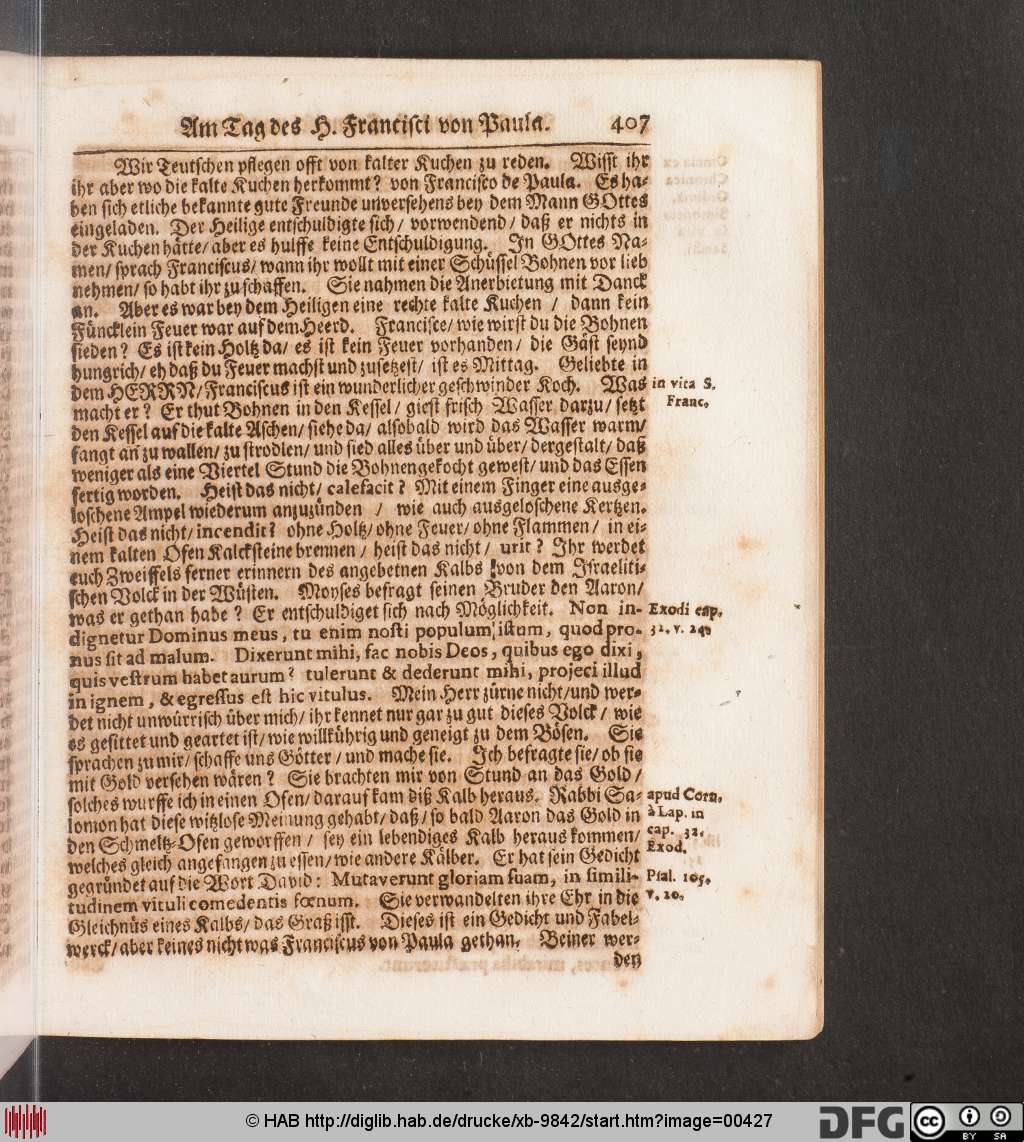 Am Tag des H. Francisci von Paula. 407
Wir Teutschen pflegen offt von kalter Kuchen zu reden. Wisst ihr
ihr aber wo die kalte Kuchen herkommt? von Francisco de Paula. Es ha-
ben sich etliche bekannte gute Freunde unversehens bey dem Mann GOttes
eingeladen. Der Heilige entschuldigte sich/ vorwendend/ daß er nichts in
der Kuchen hätte/ aber es hulffe keine Entschuldigung. In GOttes Na-
men/ sprach Franciscus/ wann ihr wollt mit einer Schüssel Bohnen vor lieb
nehmen/ so habt ihr zu schaffen. Sie nahmen die Anerbietung mit Danck
an. Aber es war bey dem Heiligen eine rechte kalte Kuchen / dann kein
Füncklein Feuer war auf dem Heerd. Francisce/ wie wirst du die Bohnen
sieden? Es ist kein Holtz da/ es ist kein Feuer vorhanden/ die Gäst seynd
hungrich/ eh daß du Feuer machst und zusetzest/ ist es Mittag. Geliebte in
dem HERRN/ Franciscus ist ein wunderlicher geschwinder Koch. Was
in vita S.
Franc.
macht er? Er thut Bohnen in den Kessel/ giest frisch Wasser darzu/ setzt
den Kessel auf die kalte Aschen/ siehe da/ alsobald wird das Wasser warm/
fangt an zu wallen/ zu strodlen/ und sied alles über und über/ dergestalt/ daß
weniger als eine Viertel Stund die Bohnen gekocht gewest/ und das Essen
fertig worden. Heist das nicht/ calefacit? Mit einem Finger eine ausge-
loschene Ampel wiederum anzuzünden / wie auch ausgeloschene Kertzen.
Heist das nicht/ incendit? ohne Holtz/ ohne Feuer/ ohne Flammen/ in ei-
nem kalten Ofen Kalcksteine brennen/ heist das nicht/ urit? Ihr werdet
euch Zweiffels ferner erinnern des angebetnen Kalbs von dem Israeliti-
schen Volck in der Wüsten. Moyses befragt seinen Bruder den Aaron/
was er gethan habe? Er entschuldiget sich nach Möglichkeit. Non in-
Exodi cap.
32. v. 24.
dignetur Dominus meus, tu enim nosti populum istum, quod pro-
nus sit ad malum. Dixerunt mihi, fac nobis Deos, quibus ego dixi,
quis vestrum habet aurum? tulerunt & dederunt mihi, projeci illud
in ignem, & egressus est hic vitulus. Mein Herr zürne nicht/ und wer-
det nicht unwürrisch über mich/ ihr kennet nur gar zu gut dieses Volck/ wie
es gesittet und geartet ist/ wie willkührig und geneigt zu dem Bösen. Sie
sprachen zu mir/ schaffe uns Götter/ und mache sie. Ich befragte sie/ ob sie
mit Gold versehen wären? Sie brachten mir von Stund an das Gold/
solches wurffe ich in einen Ofen/ darauf kam diß Kalb heraus. Rabbi Sa-
apud Corn.
à Lap. in
cap. 32.
Exod.
lomon hat diese witzlose Meinung gehabt/ daß/ so bald Aaron das Gold in
den Schmeltz-Ofen geworffen/ sey ein lebendiges Kalb heraus kommen/
welches gleich angefangen zu essen/ wie andere Kälber. Er hat sein Gedicht
gegründet auf die Wort David: Mutaverunt gloriam suam, in simili-
Psal. 105.
v. 20.
tudinem vituli comedentis fœnum. Sie verwandelten ihre Ehr in die
Gleichnüs eines Kalbs/ das Graß isst. Dieses ist ein Gedicht und Fabel-
werck/ aber keines nicht was Franciscus von Paula gethan. Beiner wer-
den
© HAB http://diglib.hab.de/drucke/xb-9842/start.htm?image=00427
DFG
cc
BY SA